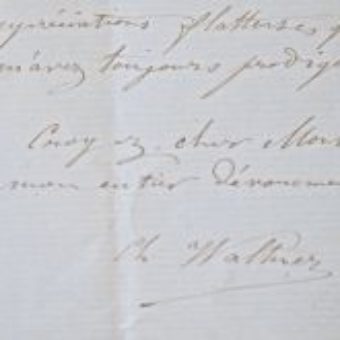 appréciations flatteuses
m'avez toujours prodig
Croyez cher Mons
mon entier dévouemen
Ch Walther